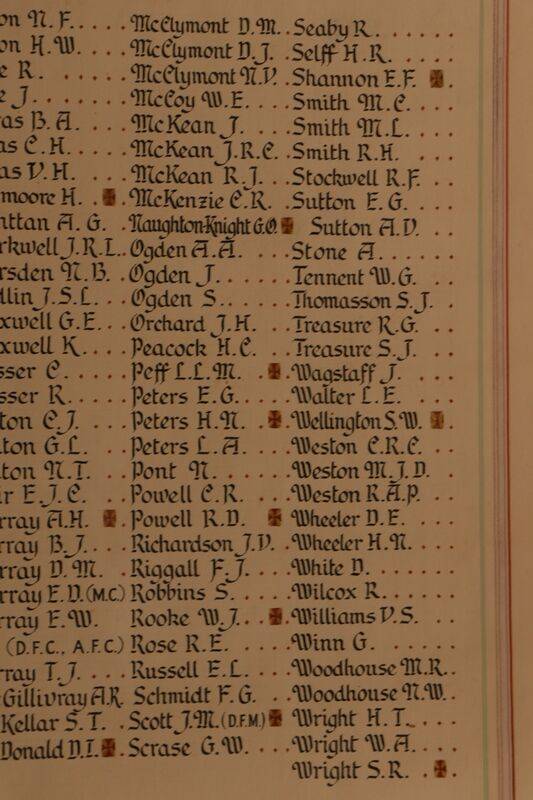 on N. F.
on H. W.
e R.
e J.
as B. A.
as C. H.
as V. H.
moore H.
ttan A. G.
rkwell J. R. L.
rsden N. B.
dlin J. S. L.
xwell G. E.
xwell K.
sser C.
sser R.
ton C. J.
ton G. L.
ton N. T.
ir E. J. C.
rray A. H.
rray B. J.
rray D. M.
rray E. D. (M.C.)
rray F. W.
(D.F.C., A.F.C.)
rray T. J.
Gillivray A. R.
Kellar S. T.
Donald D. I.
McClymont D. M.
McClymont D. J.
McClymont N. V.
McCoy W. E.
McKean J.
McKean J. R. C.
McKean R. J.
McKenzie C. R.
Naughton-Knight G. O.
Ogden A. A.
Ogden J.
Ogden S.
Orchard J. H.
Peacock H. C.
Peff L. L. M.
Peters E. G.
Peters H. N.
Peters L. A.
Pont N.
Powell C. R.
Powell R. D.
Richardson J. V.
Riggall F. J.
Robbins S.
Rooke W. J.
Rose R. E.
Russell E. L.
Schmidt F. G.
Scott J. M. (D.F.M.)
Scrase G. W.
Seaby R.
Selff H. R.
Shannon E. F.
Smith M. C.
Smith M. L.
Smith R. H.
Stockwell R. F.
Sutton E. G.
Sutton A. V.
Stone A.
Tennent W. G.
Thomasson S. J.
Treasure R. G.
Treasure S. J.
Wagstaff J.
Walter L. E.
Wellington S. W.
Weston C. R. C.
Weston M. J. D.
Weston R. A. P.
Wheeler D. E.
Wheeler H. N.
White D.
Wilcox R.
Williams V. S.
Winn G.
Woodhouse M. R.
Woodhouse N. W.
Wright H. T.
Wright W. A.
Wright S. R.